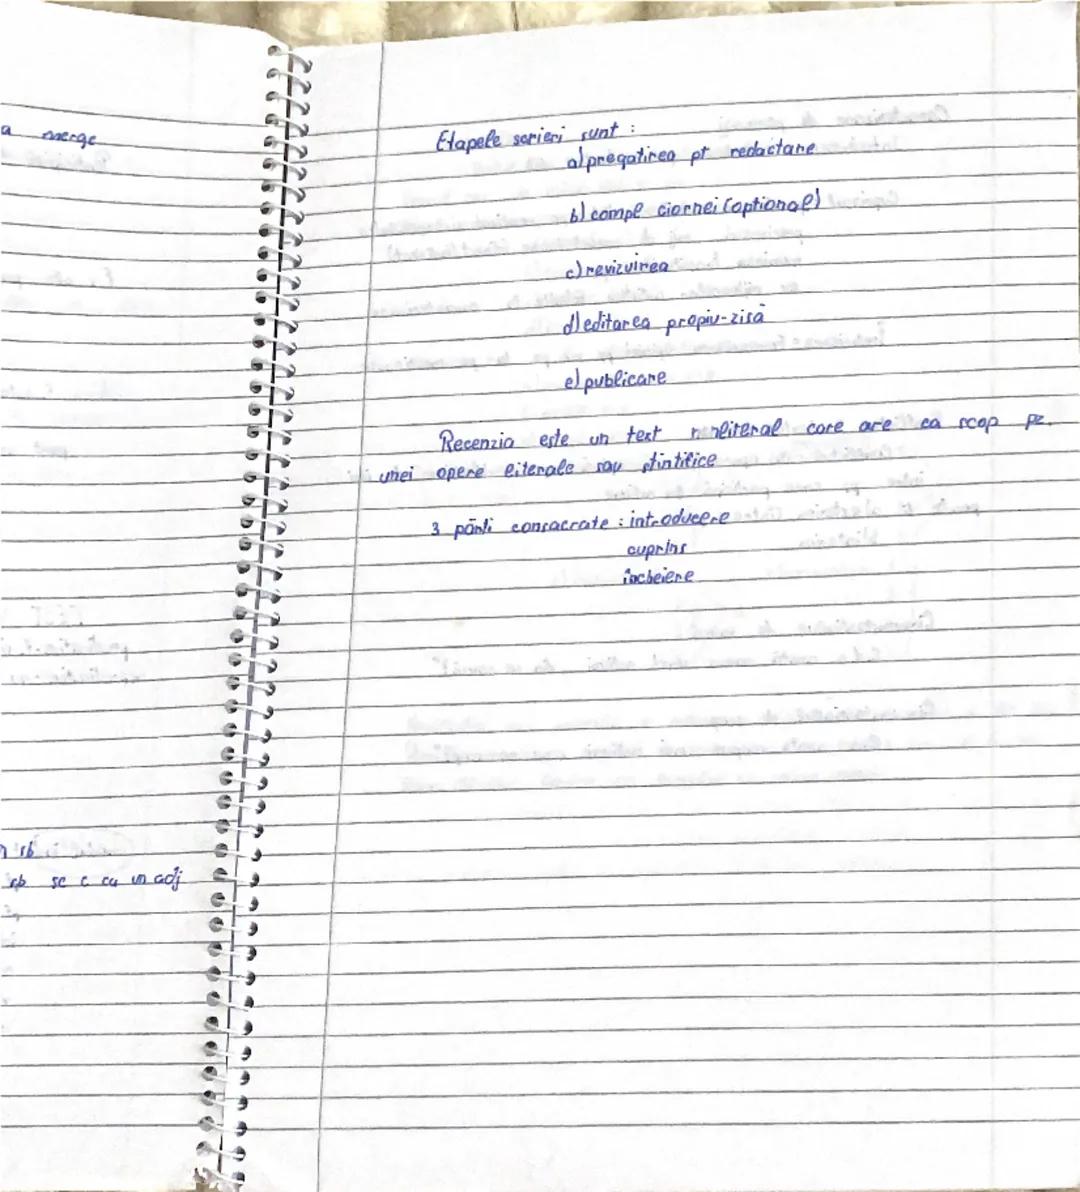 a merge
rb
rb se c cu un adj
Etapele scrieri sunt :
a) pregatirea pt redactare
b) compl ciornei (optional)
c) revizuirea
d) editarea propiu-zisă
e) publicare
Recenzia este un text nonliteral care are ca scop pz.
unei opere literale sau științifice
3 părți consacrate : introducere
cuprins
încheiere